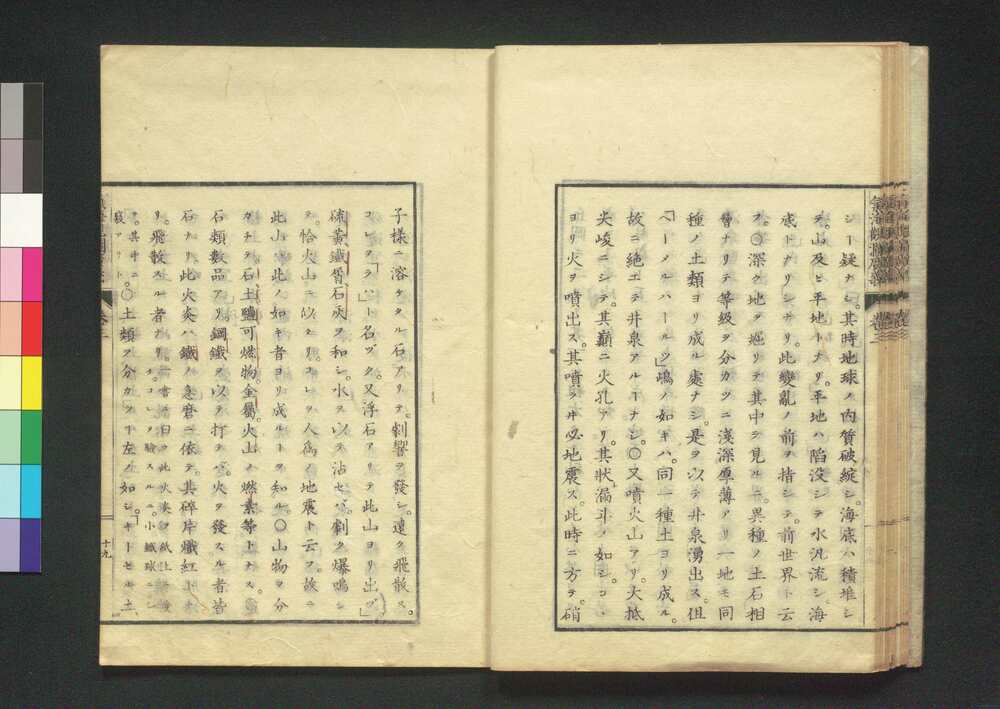 シﾄ疑ナシ。其時地球ノ内質破綻シ。海底ハ積堆シ
テ。山及ヒ平地トナリ。平地ハ陥没シテ水汎流シ海
底トナリシナリ。此變亂ノ前ヲ指シテ。前世界ト云
フ。〇深ク地ヲ堀リテ其中ヲ見ルニ。異種ノ土石相
層ナリテ等級ヲ分カツニ淺深厚薄アリ一地モ同
種ノ土類ヨリ成ル處ナシ。是ヲ以テ井泉湧出ス。但
「ベーメルハールツ」嶋ノ如キハ。同一種土ヨリ成ル。
故ニ絶エテ井泉アルﾄナシ。〇又噴火山アリ。大抵
尖峻ニシテ。其巓ニ火孔アリ。其狀漏斗ノ如シ。コヽ
ヨリ火ヲ噴出ス。其噴ヲヰ必地震ス。此時ニ方テ。硝
子樣ニ溶ケタル石アリテ。劇響ヲ發シ。遠ク飛散ス。
コレヲラハ」ト名ヅク。又浮石アリテ此山ヨリ出ヅ」
硫黃鐵屑石灰ヲ和シ。水ヲ以テ沾セバ。劇ク爆鳴シ
テ。恰火山ニ似タリ。コレヲ人爲ノ地震ト云フ。故ニ
此山ハ此ノ如キ者ヨリ成ルﾄヲ知ル〇山物ヲ分
カチテ石土鹽可燃物金屬火山ノ燃素等トナス。
石類數品アリ鋼鐵ヲ以テ打テバ。火ヲ發スル者皆
石ナリ此火炎ハ。鐵ノ急磨ニ依テ。其碎片熾紅シ
リ。飛散スル者ナリ。
〇土類ヲ分カツﾄ左ノ如シ
十九